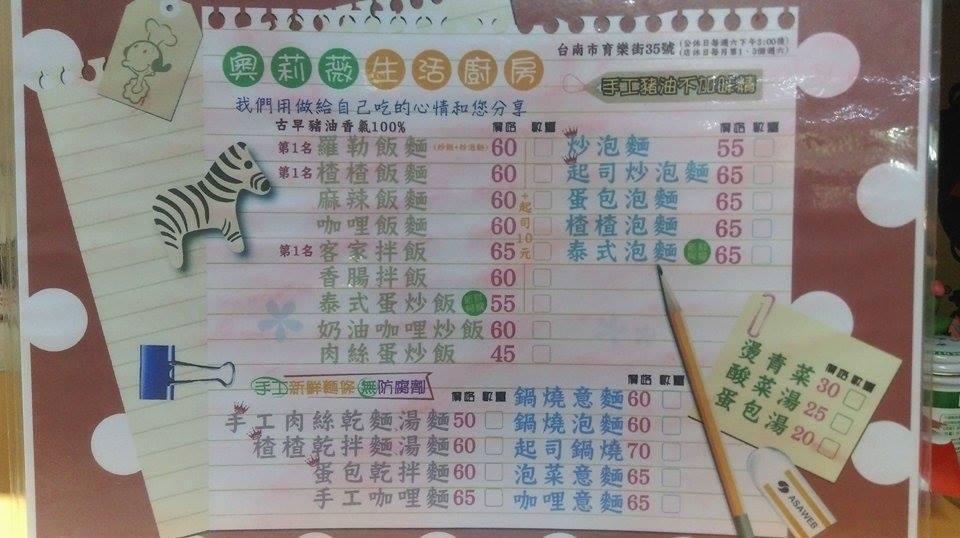 台南市育樂街35號 (公休日每週六下午3:00後)
(店休日每月第1、3個週六)
奧莉薇生活廚房
手工豬油不加味精
我們用做給自己吃的心情和您分享
古早豬油香氣100% 價格 數量 價格 數量
第1名 羅勒飯麵 (炒飯+炒泡麵) 60 炒泡麵 55
第1名 楂楂飯麵 60 起司炒泡麵 65
麻辣飯麵 60 蛋包泡麵 65
咖哩飯麵 60 楂楂泡麵 65
第1名 客家拌飯 65 泰式泡麵 65
香腸拌飯 60
泰式蛋炒飯 55
奶油咖哩炒飯 60
肉絲蛋炒飯 45
+起司10元
手工新鮮麵條 無防腐劑
價格 數量 價格 數量
鍋燒意麵 60
手工肉絲乾麵湯麵 50 鍋燒泡麵 60
楂楂乾拌麵湯麵 60 起司鍋燒 70
蛋包乾拌麵 60 泡菜意麵 65
手工咖哩麵 65 咖哩意麵 65
價格 數量
燙青菜 30
酸菜湯 25
蛋包湯 20
ASAWEB